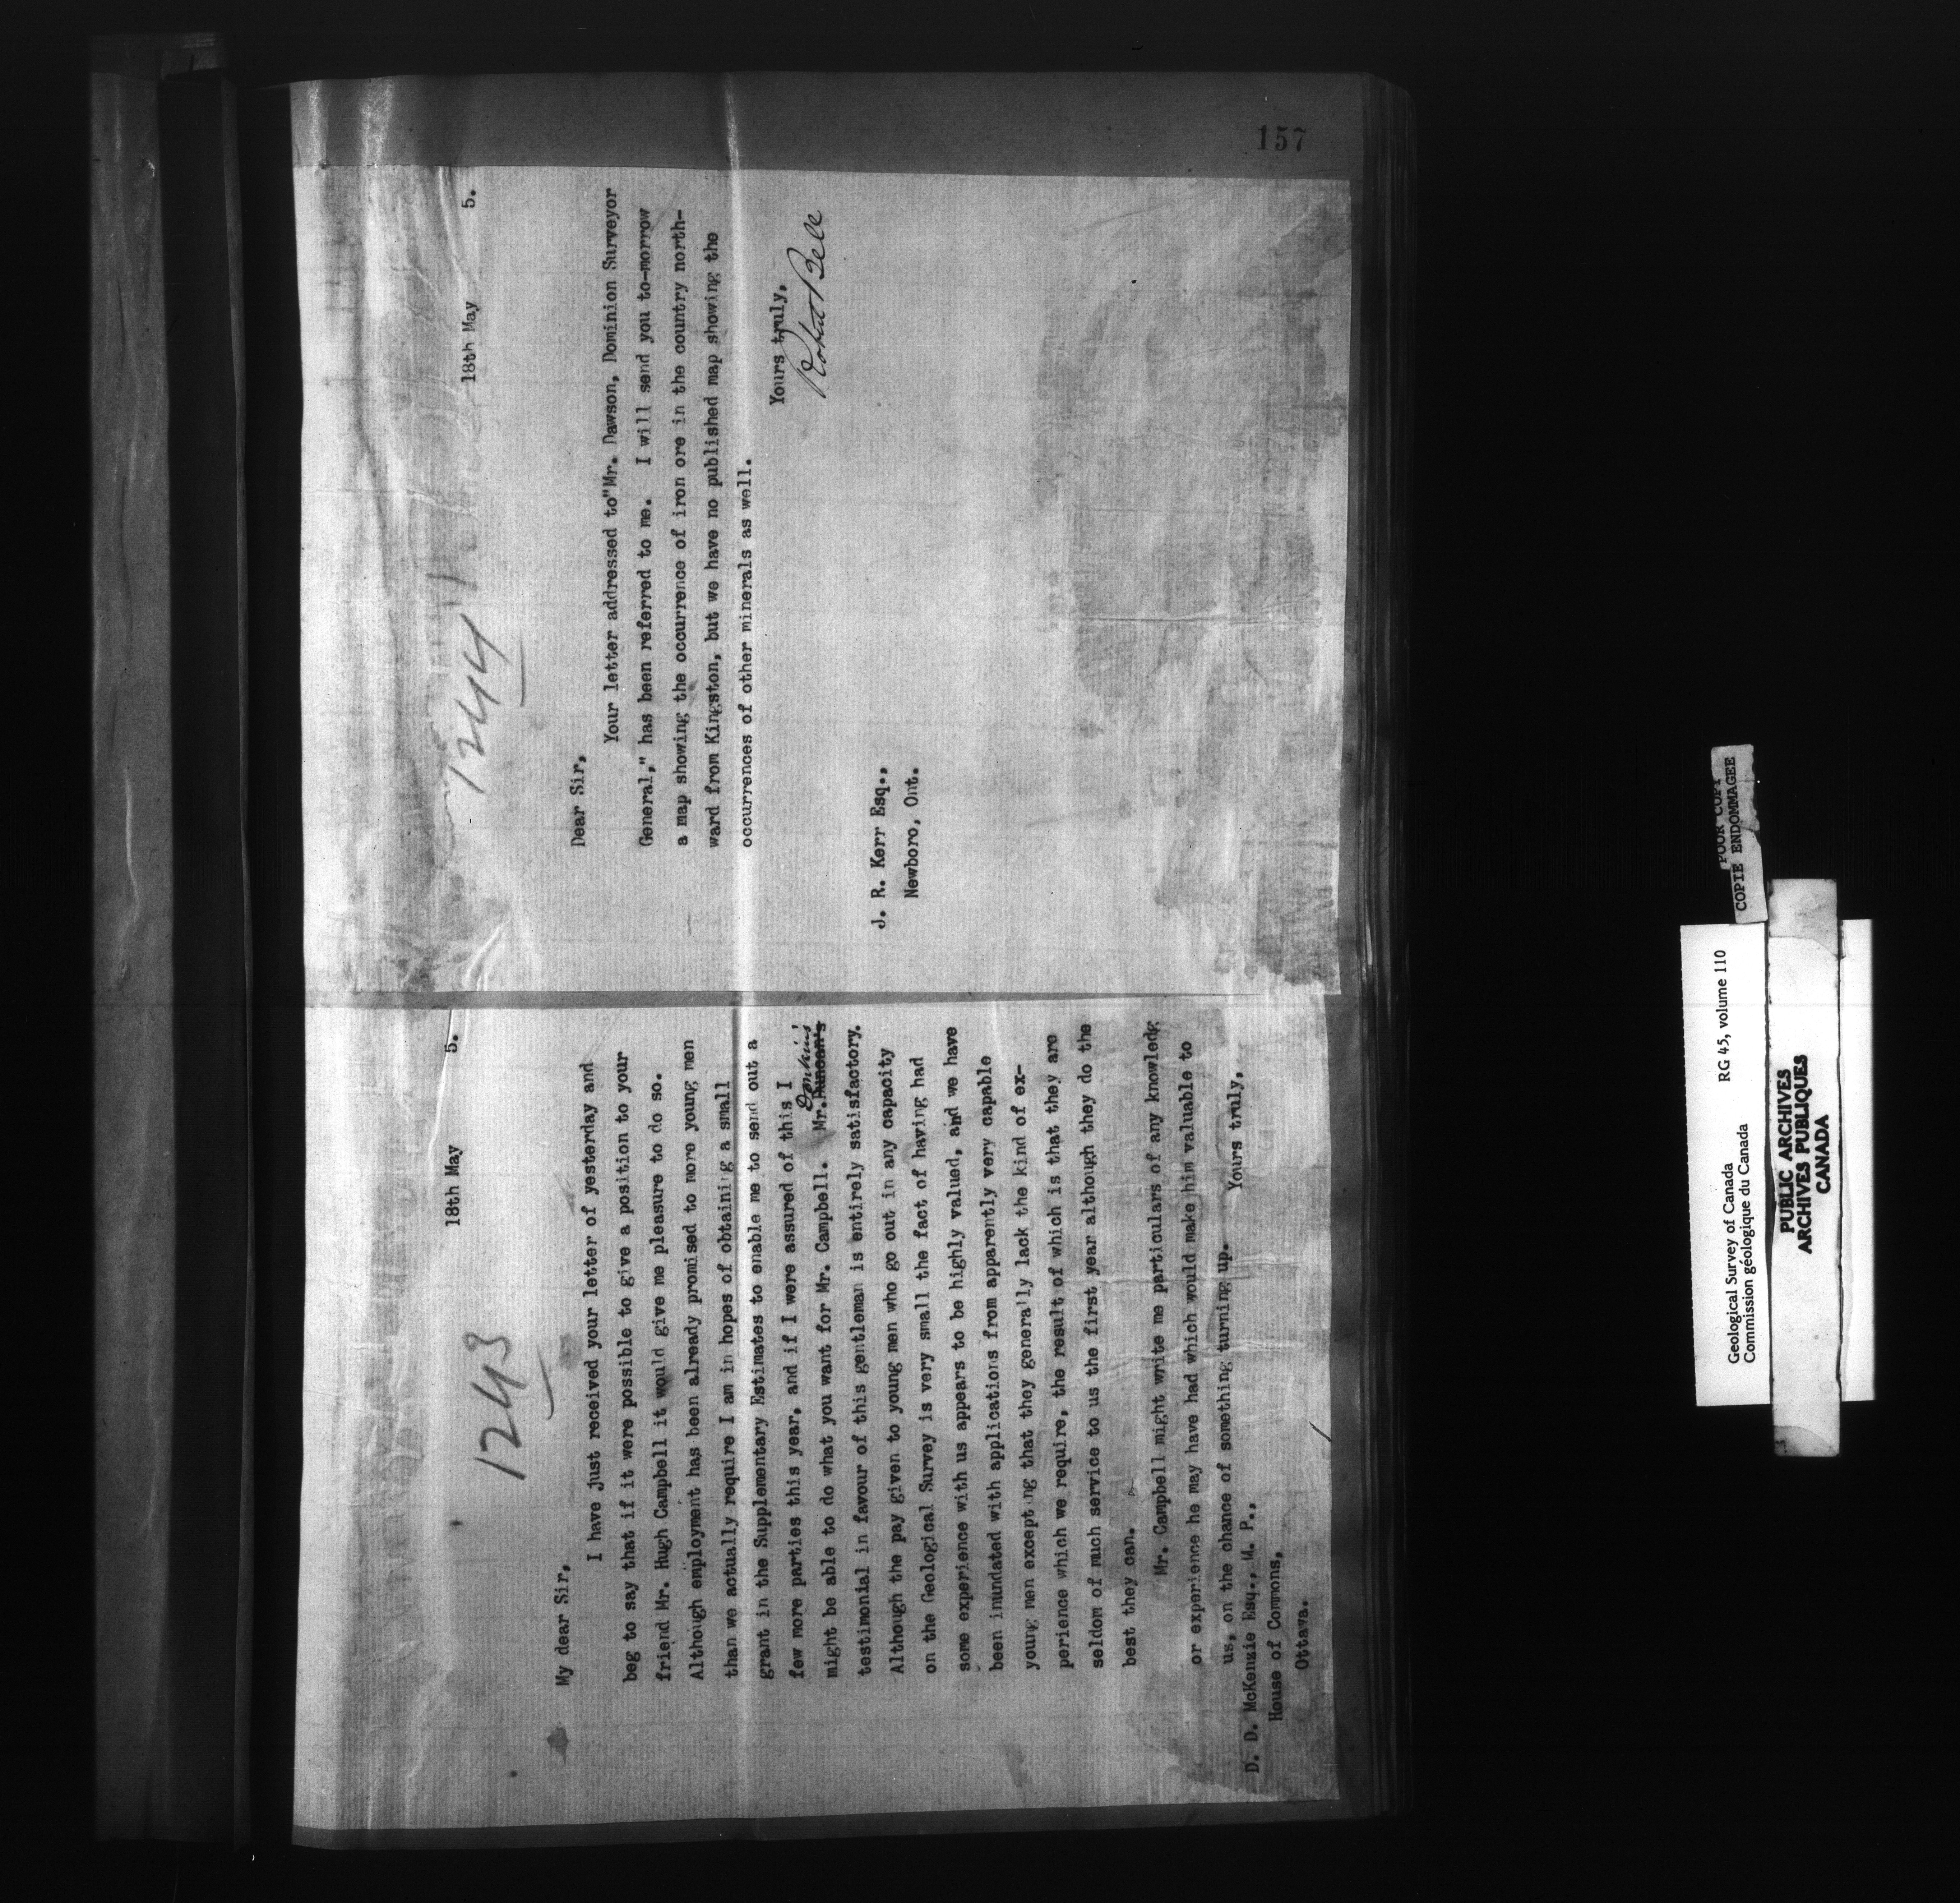 157
1243
18th May 5.
My dear Sir,
I have just received your letter of yesterday and
beg to say that if it were possible to give a position to your
friend Mr. Hugh Campbell it would give me pleasure to do so.
Although employment has been already promised to more young men
than we actually require I am in hopes of obtaining a small
grant in the Supplementary Estimates to enable me to send out a
few more parties this year, and if I were assured of this I
might be able to do what you want for Mr. Campbell. Mr. Duncan's
testimonial in favour of this gentleman is entirely satisfactory.
Although the pay given to young men who go out in any capacity
on the Geological Survey is very small the fact of having had
some experience with us appears to be highly valued, and we have
been inundated with applications from apparently very capable
young men excepting that they generally lack the kind of ex-
perience which we require, the result of which is that they are
seldom of much service to us the first year although they do the
best they can.
Mr. Campbell might write me particulars of any knowledg
or experience he may have had which would make him valuable to
us, on the chance of something turning up. Yours truly,
D. D. McKenzie Esq., M. P.,
House of Commons,
Ottawa.
1244
18th May 5.
Dear Sir,
Your letter addressed to"Mr. Dawson, Dominion Surveyor
General," has been referred to me. I will send you to-morrow
a map showing the occurrence of iron ore in the country north-
ward from Kingston, but we have no published map showing the
occurrences of other minerals as well.
Yours truly,
Robert Bell
J. R. Kerr Esq.,
Newboro, Ont.
POOR COPY
COPIE ENDOMMAGEE
Geological Survey of Canada RG 45, volume 110
Commission géologique du Canada
PUBLIC ARCHIVES
ARCHIVES PUBLIQUES
CANADA